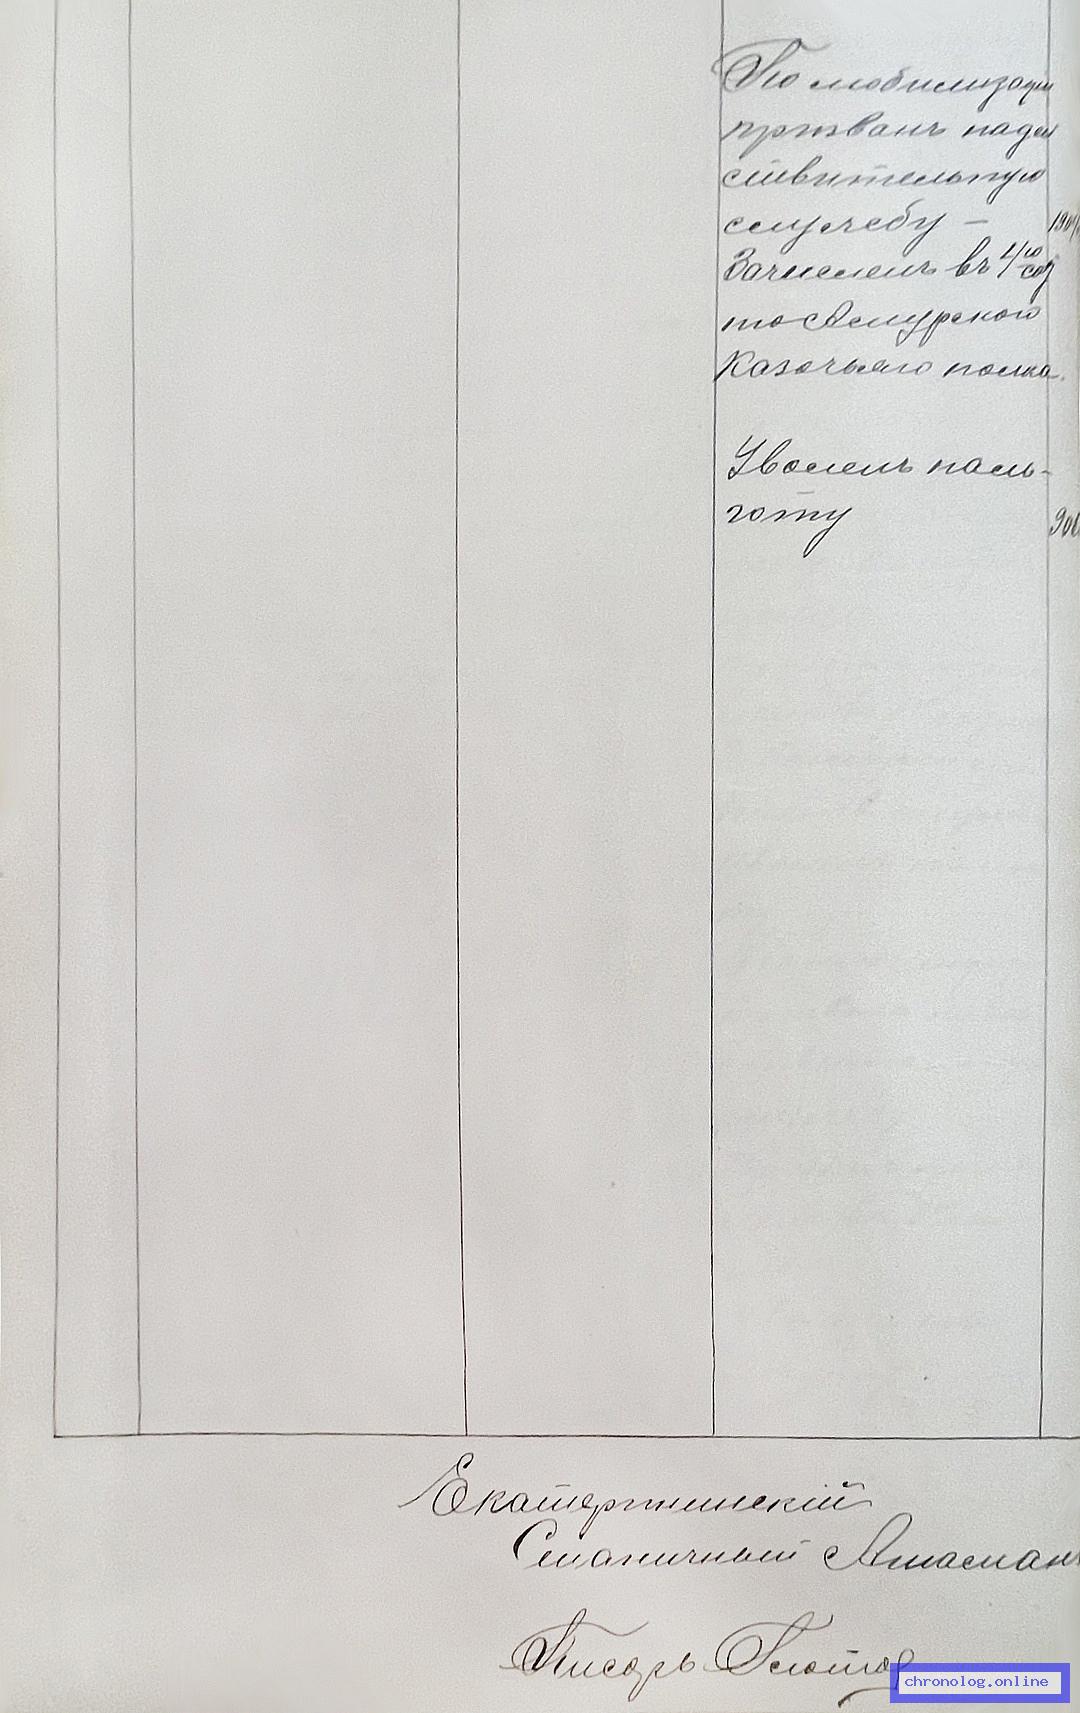 По мобилизаціи
призванъ на дѣй
ствительную
службу —
Зачисленъ въ 4ю сот
ню Амурского
Казачьяго полка.
Уволенъ на ль-
готу
Екатерининскій
Станичный Атаманъ
Писарь
chronolog.online